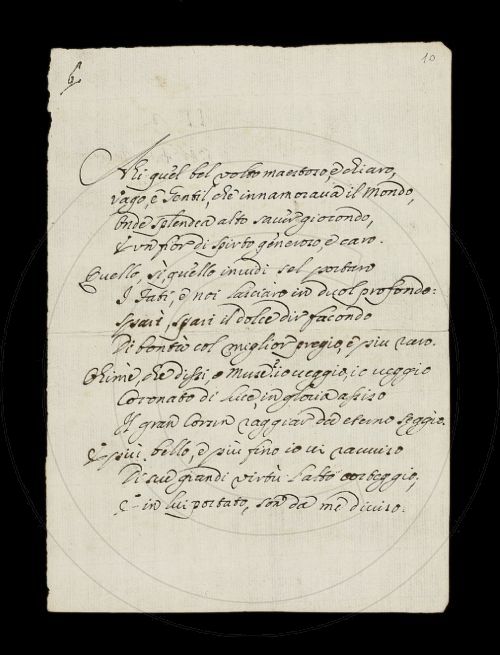 6
10
Ahi quel bel volto maestoso, e chiaro,
Vago, e Gentil, che innamorava il Mondo,
Onde splendea alto saver giocondo,
E un fior di spirto generoso, e caro.
Quello, sì, quello invidi sel portaro
I Fati, e noi lasciaro in duol profondo:
Sparì, sparì il dolce dir facondo
Di bontà col miglior pregio, e più raro.
Ohimè, che dissi, o Muse? io veggio, io veggio
Coronato di luce in gloria assiso
Il gran raggiar da eterno seggio.
E più bello, e più fino io vi ravviso
Di sue grandi virtù l'alto
E in lui portato, son da me diviso.